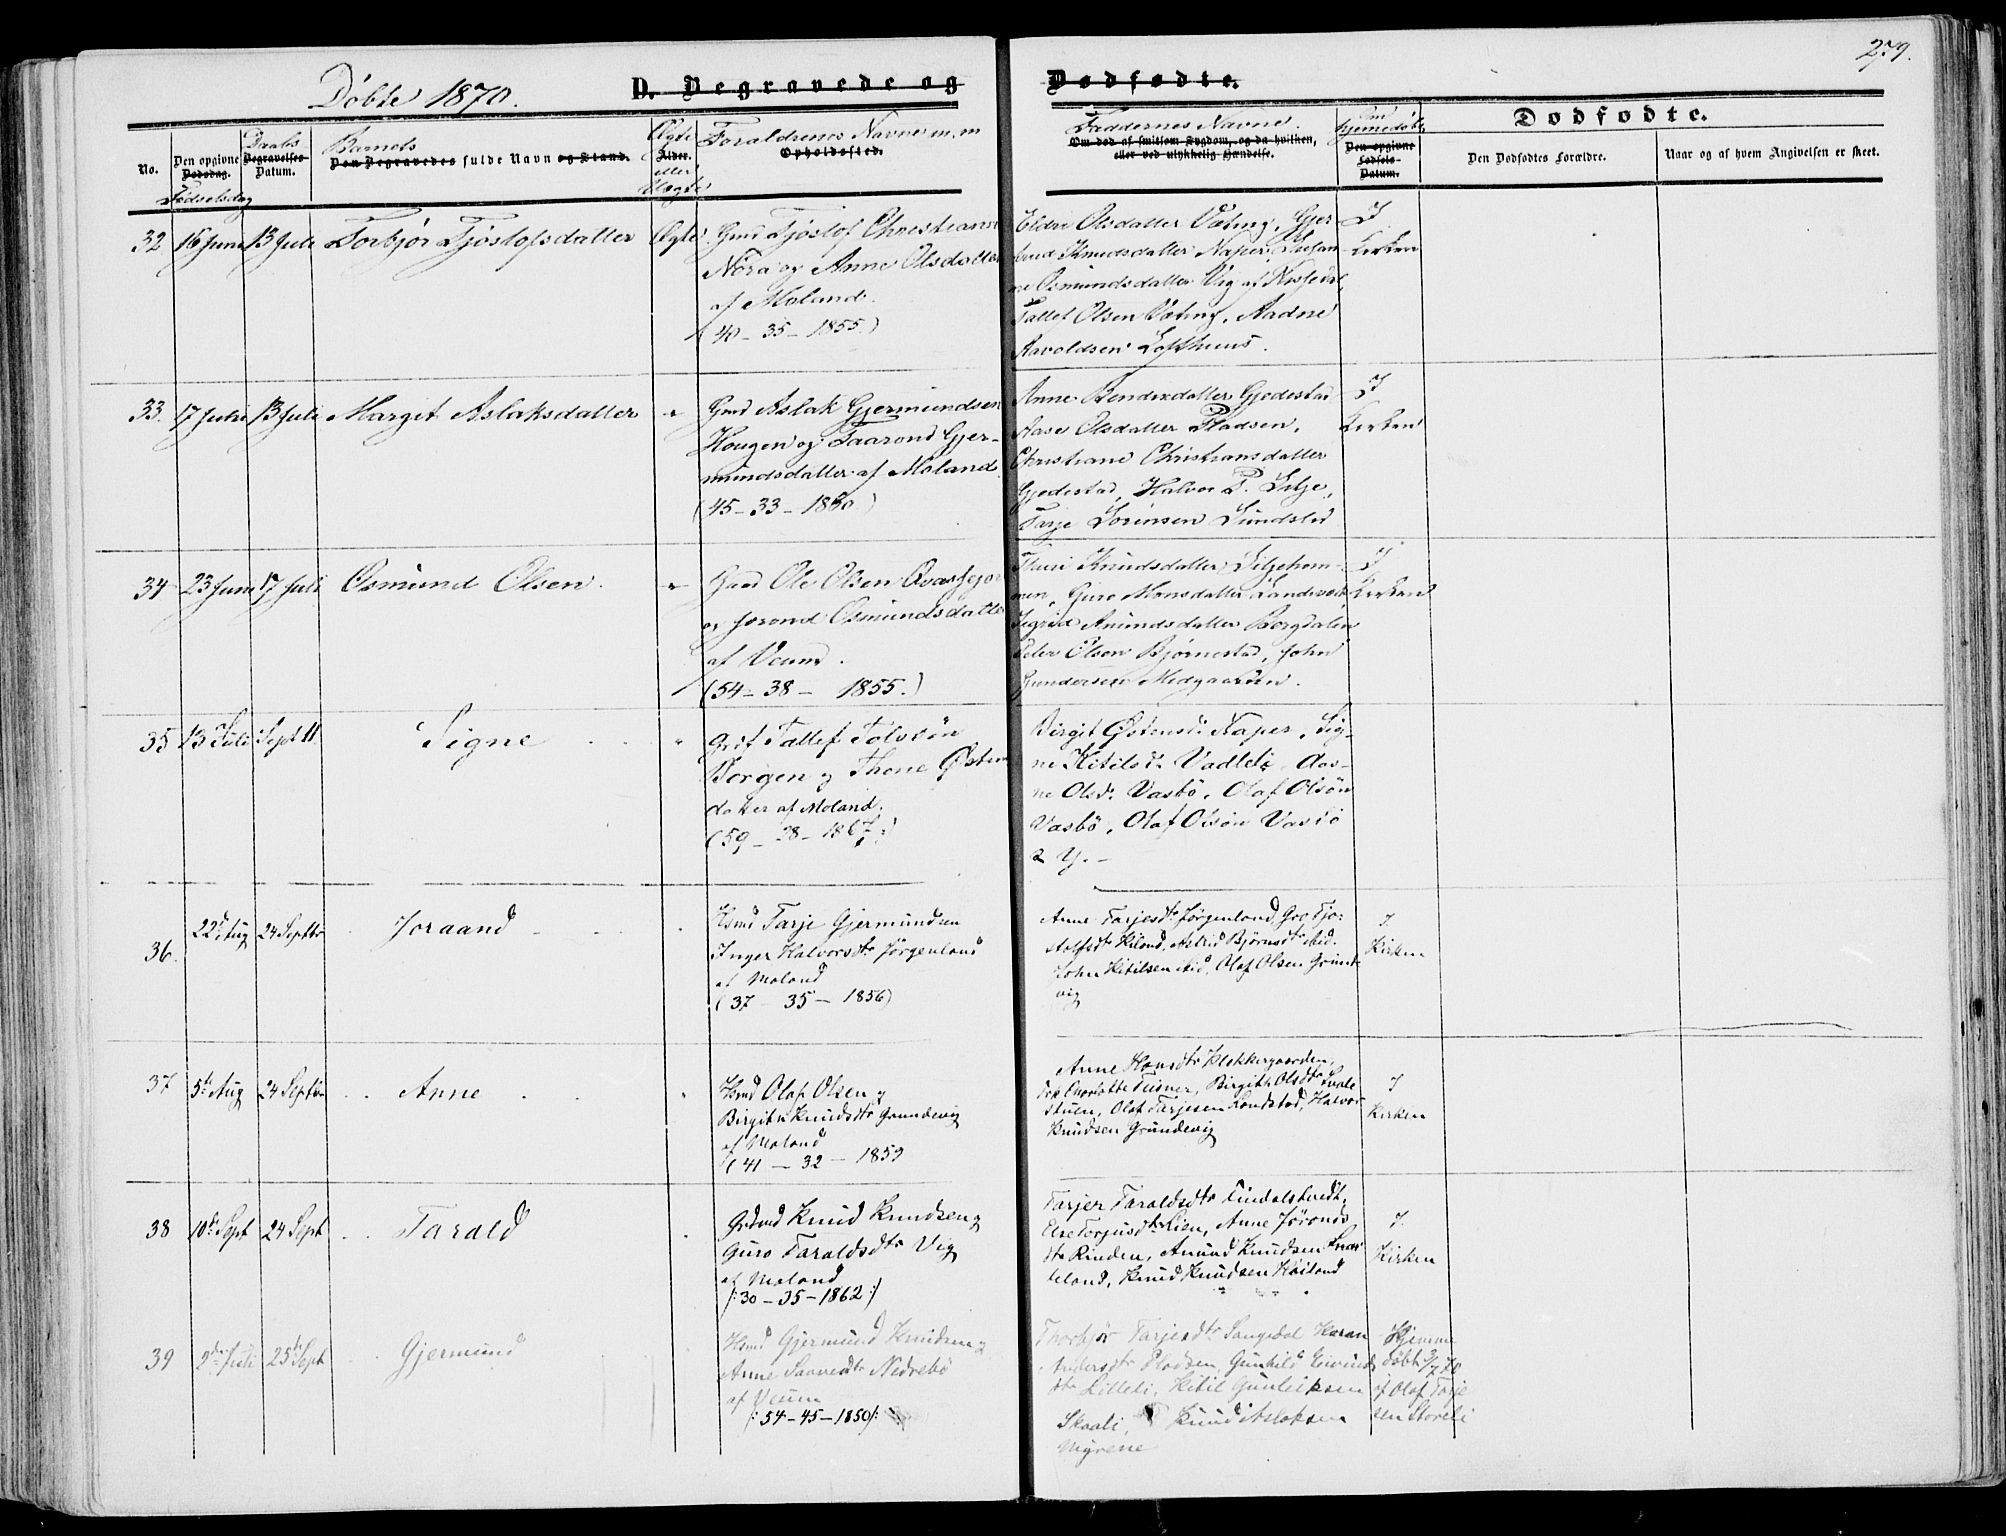 279.
Döbte 1870.
D. Begravede og
Dødfødte.
No.
Den opgivne
Dødsdag.
Fødselsdag
Daabs
Begravelses-
Datum.
Barnets
Den Begravedes fulde Navn og Stand.
Ægte
Alder.
eller
Uægte
Foraldrenes Navne m.m
Opholdssted.
Faddernes Navne.
Om død af smitsom Sygdom, og da hvilken,
eller ved ulykkelig Hændelse.
Om
hjemmedøbt
Den opgivne
Fødsels-
Datum.
Dødfødte.
Den Dødfødtes Forældre.
Naar og af hvem Angivelsen er skeet.
32 16 Juni 13 Juli Torbjør Tjöstofsdatter Ægte
Gmd Tjöstof Christians
Nora og Anne Olsdatter
af Moland.
(40 - 35 - 1855.)
Olsdatter Vating, Gjer-
trud Knudsdatter Naper,
ne Osmundsdatter Vig af
Tallef Olsen Vating, Aadne
Aavoldsen Lofthuus.
I
Kirken
33. 17 Juni 13 Juli Margit Aslaksdatter "
Gmd Aslak Gjermundsen
Hougen og Taarond Gjer-
mundsdatter af Moland.
(45 - 33 - 1860)
Anne Bendixdatter Gjedestad
Aase Olsdatter Pladsen,
Christiane Christiansdatter
Gjedestad, Halvor P. Lilje,
Tarje Sörensen Sundsled
I
Kirken
34 23 Juni 17 Juli Osmund Olsen. "
Gaard Ole Olsen
og Jorond Osmundsdatter
af Veum.
(54 - 38 - 1855.)
Thuri Knudsdatter Liljehom-
men, Guro Monsdatter
Sigrid Anundsdatter Bergdalen
Peder Olsen Bjørnestad, John
Gundersen Midgaarden.
I
Kirken
35 13 Juli Sept 11 Signe "
Grdf Tallef Tolvsön
Borgen og Thone Østens
datter af Moland.
(59 - 28 - 1867.)
Birgit Østensd: Naper, Sig-
ne Kitilsd: Vadleti, Aas-
ne Olsd: Vasbö, Olaf Olsön
Vasbö, Olaf Olsön Vasbö
2 y. -
36. 22d Aug 24 Septbr Joraand
Hsmd Tarje Gjermundsen
Inger Halvorsdtr Jørgenland
af Moland
(37 - 35 - 1856)
Anne Tarjesdtr Jørgenland, Gro Tjo-
stolfsdtr Kiland, Astrid Björnsdtr ibid.
John Kitilsen ibid, Olaf Olsen Grund-
vig
I
Kirken
37 5te Aug 24 Septbr Anne "
Hsmd Olaf Olsen og
Birgith Knudsdtr Grundevig
af Moland
(41 - 32 - 1859
Anne Hansdtr Klokkergaarden,
Frk Charlotte Teisner, Birgith Olsdtr
stuen, Olaf Tarjesen Sondstad, Halvor
Knudsen Grundevig
I
Kirken
38 10de Sept 24 Sept Tarald "
Grdmd Knud Knudsen og
Guro Taraldsdtr Vig
af Moland
/:30 - 35 - 1862:/
Tarjer Taraldsdtr Tindalstveidt,
Else Torjusdtr Lien, Anne Jöronds
dtr Rinden, Anund Knudsen
teland, Knud Knudsen Hailand
I
Kirken
39 2den Juli 25de Sept Gjermund
Hsmd Gjermund Knudsen og
Anne Saavesdtr Nedrebö
af Veum
/:54 - 45 - 1850/:
Thorbjör Tarjesdtr Haugedal Karen
Andersdtr Pladsen, Gunhild Eivinds
dtr Lilleli, Kitil Gunleiksen
Skaali, Knud Aslaksen
Myrene
Hjemme
döbt 3/7 70
af Olaf Tarje
sen Storeli